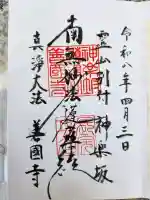 令和八年四月三日
霊山別付 神楽坂
南無妙法蓮華経
真浄大法 善國寺